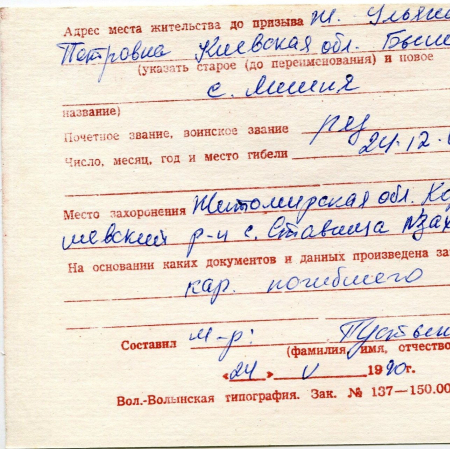 Адрес места жительства до призыва ж. Ульяна
Петровна Киевская обл. Быше
(указать старое (до переименования) и новое
с. Мишня
название)
Почетное звание, воинское звание ряд
Число, месяц, год и место гибели 24.12.
Место захоронения Житомирская обл. Ко
шевский р-н с. Ставище
На основании каких документов и данных произведена за
кар. погибшего
Составил м-р:
(фамилия, имя, отчество
«24» V 1990г.
Вол.-Волынская типография. Зак. № 137—150.00